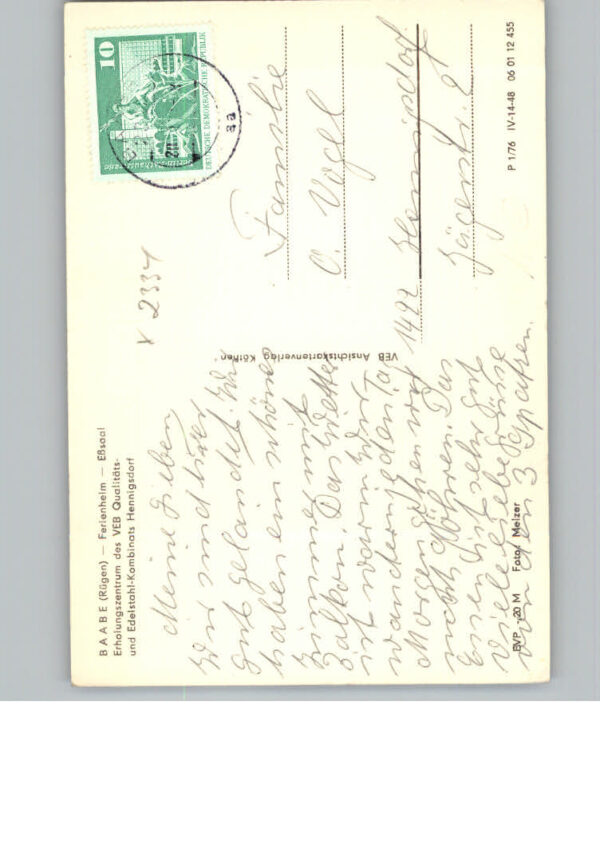 BAABE (Rügen) — Ferienheim — Eßsaal
Erholungszentrum des VEB Qualitäts-
und Edelstahl-Kombinats Hennigsdorf
Meine Lieben
Wir sind hier
gut gelandet. Wir
haben ein schönes
Zimmer mit
Balkon. Das Wetter
ist warm. Wir
wandern jeden Tag
Morgen gehen wir
nach Göhren. Das
Essen ist sehr gut
Viele liebe Grüße
von den 3 Spatzen.
EVP -,20 M Foto: Melzer
VEB Ansichtskartenverlag Köthen
V 2334
10
DEUTSCHE DEMOKRATISCHE REPUBLIK
Berlin-Rathausstraße
aa
Familie
O. Vogel
1422 Hennigsdorf
Jägerstr. 2
P 1/76 IV-14-48 06 01 12 455